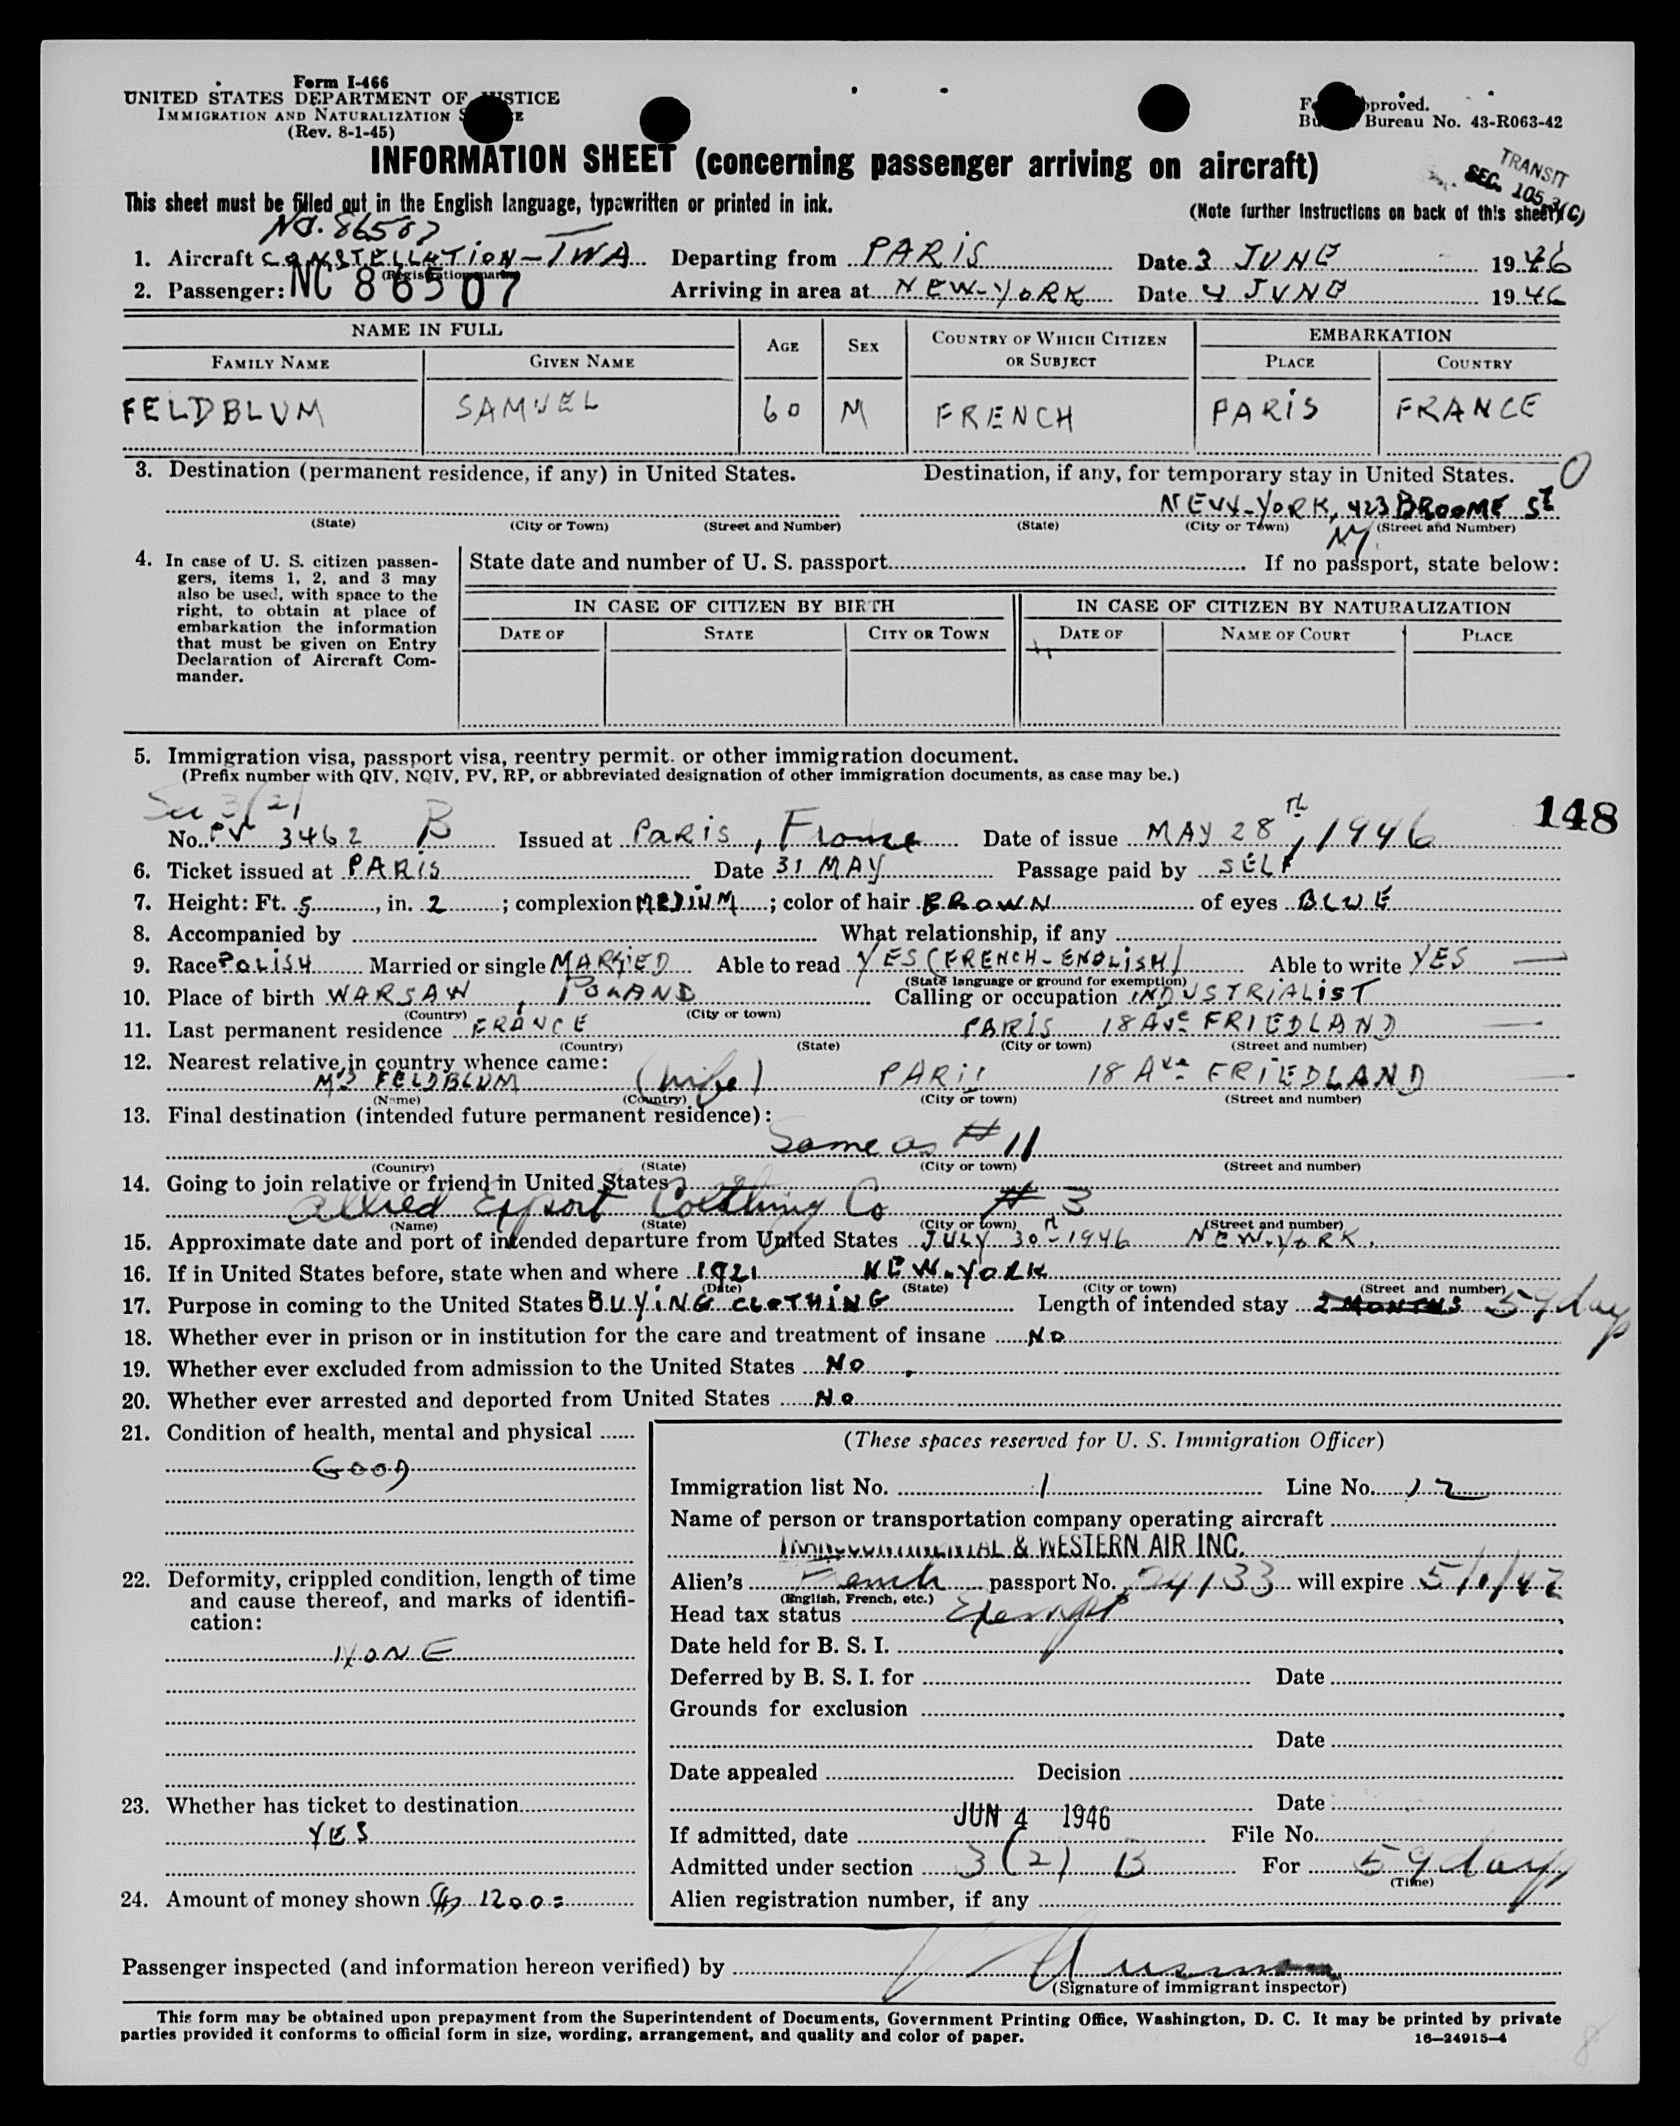 Form I-466
UNITED STATES DEPARTMENT OF JUSTICE
IMMIGRATION AND NATURALIZATION SERVICE
(Rev. 8-1-45)
Form approved.
Budget Bureau No. 43-R063-42
INFORMATION SHEET (concerning passenger arriving on aircraft)
TRANSIT
SEC. 105.3(C)
This sheet must be filled out in the English language, typewritten or printed in ink.
(Note further instructions on back of this sheet)
NO. 86507
1. Aircraft CONSTELLATION-TWA Departing from PARIS Date 3 JUNE 1946
(Registration mark)
2. Passenger: NC 86507 Arriving in area at NEW-YORK Date 4 JUNE 1946
NAME IN FULL AGE SEX COUNTRY OF WHICH CITIZEN OR SUBJECT EMBARKATION
FAMILY NAME GIVEN NAME PLACE COUNTRY
FELDBLUM SAMUEL 60 M FRENCH PARIS FRANCE
3. Destination (permanent residence, if any) in United States. Destination, if any, for temporary stay in United States. 0
NEW-YORK, 423 BROOME ST
(State) (City or Town) (Street and Number) (State) (City or Town) (Street and Number)
NY.
4. In case of U. S. citizen passen-
gers, items 1, 2, and 3 may
also be used, with space to the
right, to obtain at place of
embarkation the information
that must be given on Entry
Declaration of Aircraft Com-
mander.
State date and number of U. S. passport If no passport, state below:
IN CASE OF CITIZEN BY BIRTH IN CASE OF CITIZEN BY NATURALIZATION
DATE OF STATE CITY OR TOWN DATE OF NAME OF COURT PLACE
5. Immigration visa, passport visa, reentry permit. or other immigration document.
(Prefix number with QIV, NQIV, PV, RP, or abbreviated designation of other immigration documents, as case may be.)
Sec 3(2)
148
No. PV 3462 B Issued at PARIS, France Date of issue MAY 28th, 1946
6. Ticket issued at PARIS Date 31 MAY Passage paid by SELF
7. Height: Ft. 5, in. 2; complexion MEDIUM; color of hair BROWN of eyes BLUE
8. Accompanied by What relationship, if any
9. Race POLISH Married or single MARRIED Able to read YES (FRENCH-ENGLISH) Able to write YES
(State language or ground for exemption)
10. Place of birth WARSAW, POLAND Calling or occupation INDUSTRIALIST
(Country) (City or town)
11. Last permanent residence FRANCE PARIS 18 Ave FRIEDLAND
(Country) (State) (City or town) (Street and number)
12. Nearest relative in country whence came:
Mrs FELDBLUM (wife) PARIS 18 Ave FRIEDLAND
(Name) (Country) (City or town) (Street and number)
13. Final destination (intended future permanent residence):
Same as # 11
(Country) (State) (City or town) (Street and number)
14. Going to join relative or friend in United States
Allied Export Clothing Co # 3
(Name) (State) (City or town) (Street and number)
15. Approximate date and port of intended departure from United States JULY 30 1946 NEW-YORK.
16. If in United States before, state when and where 1921 NEW-YORK
(Date) (State) (City or town) (Street and number)
17. Purpose in coming to the United States BUYING CLOTHING Length of intended stay 2 MONTHS 59 days
18. Whether ever in prison or in institution for the care and treatment of insane NO
19. Whether ever excluded from admission to the United States NO
20. Whether ever arrested and deported from United States NO
21. Condition of health, mental and physical
GOOD
22. Deformity, crippled condition, length of time
and cause thereof, and marks of identifi-
cation:
NONE
23. Whether has ticket to destination
YES
24. Amount of money shown $ 1200=
(These spaces reserved for U. S. Immigration Officer)
Immigration list No. 1 Line No. 12
Name of person or transportation company operating aircraft
TRANSCONTINENTAL & WESTERN AIR INC.
Alien's French passport No. 24133 will expire 5/1/47
(English, French, etc.)
Head tax status Exempt
Date held for B. S. I.
Deferred by B. S. I. for Date
Grounds for exclusion
Date
Date appealed Decision
Date
If admitted, date JUN 4 1946 File No.
Admitted under section 3(2) B For 59 days
(Time)
Alien registration number, if any
Passenger inspected (and information hereon verified) by
(Signature of immigrant inspector)
This form may be obtained upon prepayment from the Superintendent of Documents, Government Printing Office, Washington, D. C. It may be printed by private
parties provided it conforms to official form in size, wording, arrangement, and quality and color of paper.
16—24915-4
8